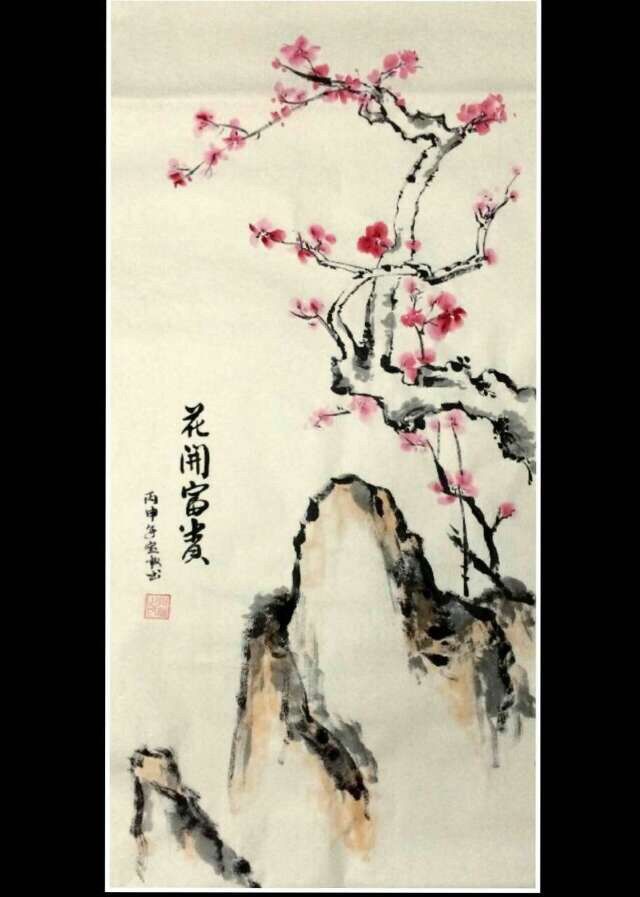 花開富貴
丙申年